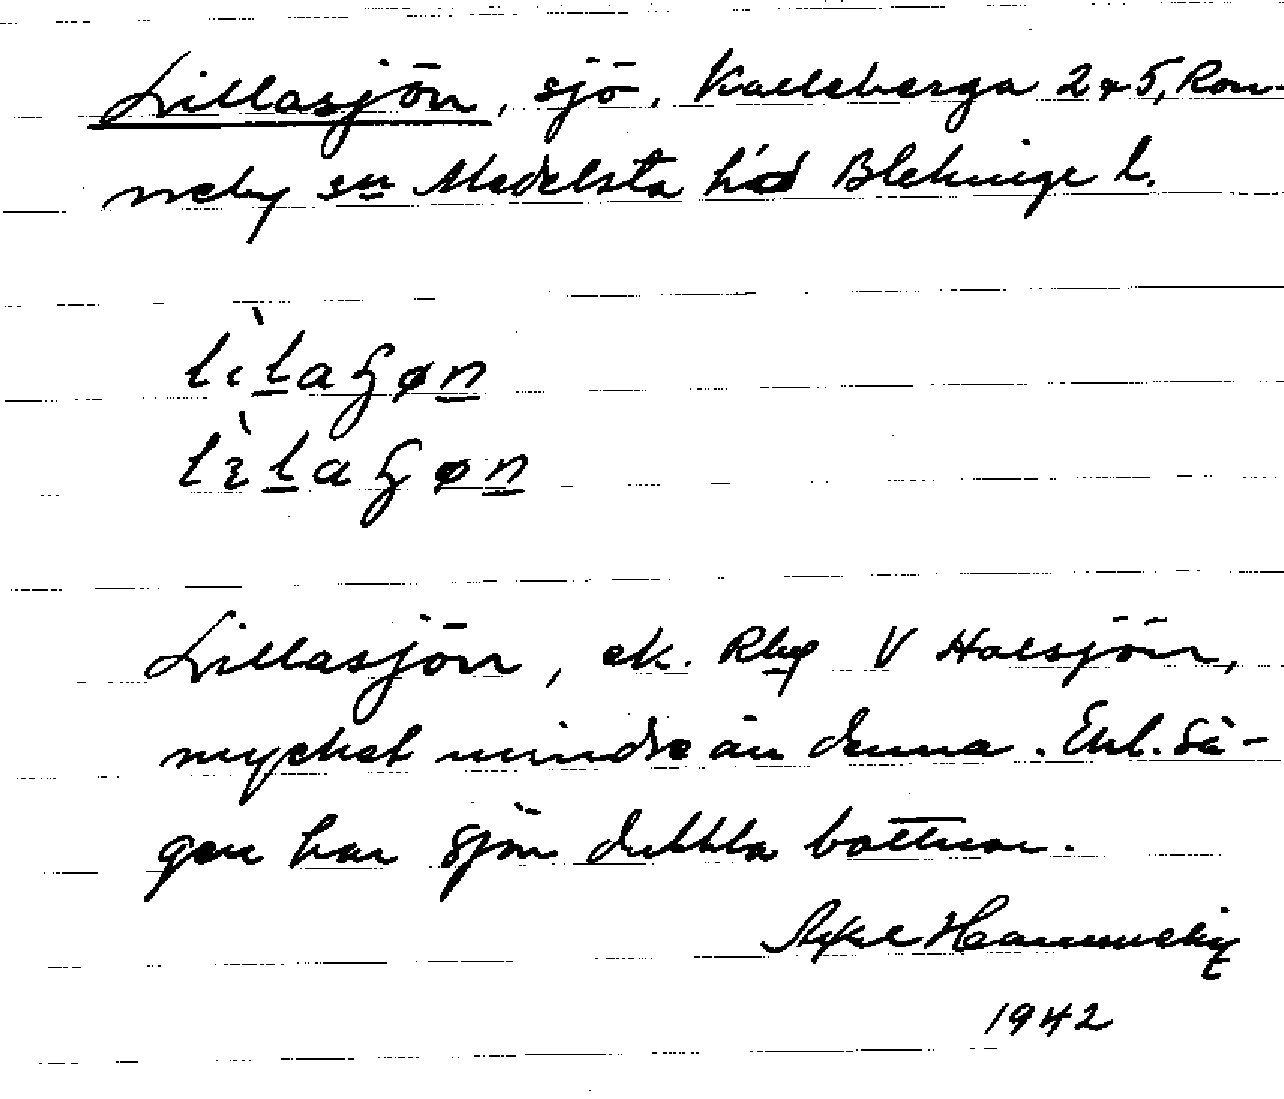 Lillasjön, sjö, Kalleberga 2 & 5, Ron-
neby sn Medelsta hd Blekinge l.
Lillasjön, ek. Rby V Halsjön,
mycket mindre än denna. Enl. sä-
gen har sjön dubbla bottnar.
Axel
1942